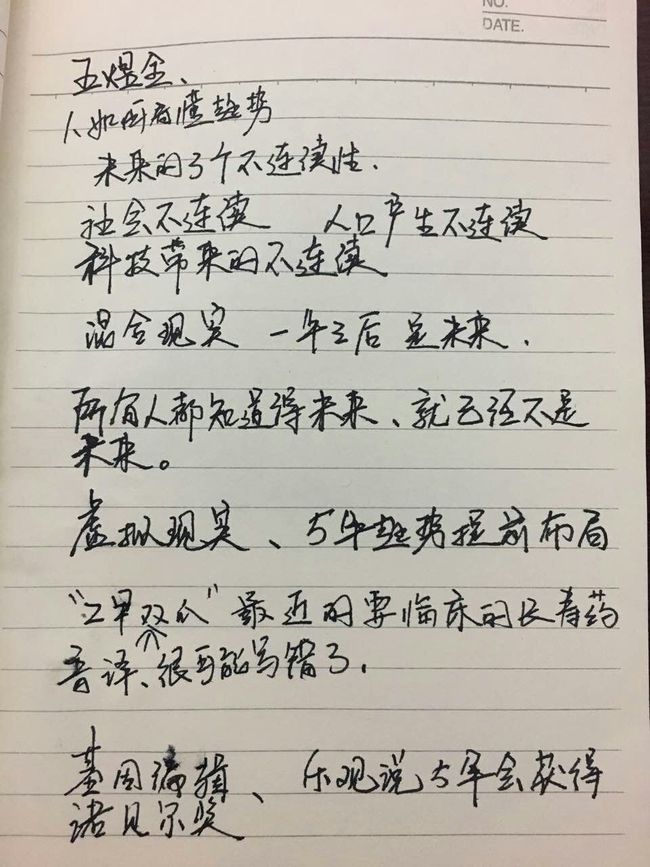 NO.
DATE.
王煜全、
人如何看懂趋势
未来的3个不连续性.
社会不连续 人口产生不连续
科技带来的不连续
混合现实 一年之后是未来.
所有人都知道得未来、就已经不是
未来。
虚拟现实、5年趋势提前布局
"二甲双瓜"最近的要临床的长寿药
音译、很可能写错了.
基因编辑、乐观说5年会获得
诺贝尔奖